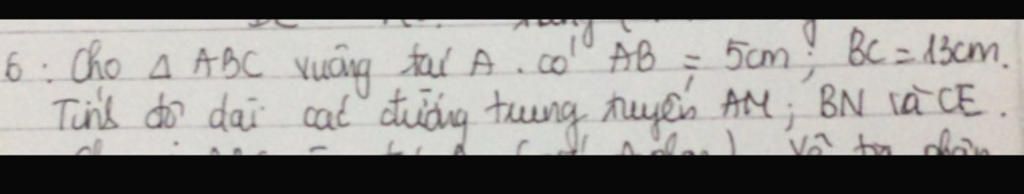 6 : Cho Δ ABC vuông tại A . có AB = 5cm ; BC = 13cm.
Tính độ dài các đường trung tuyến AM ; BN và CE .